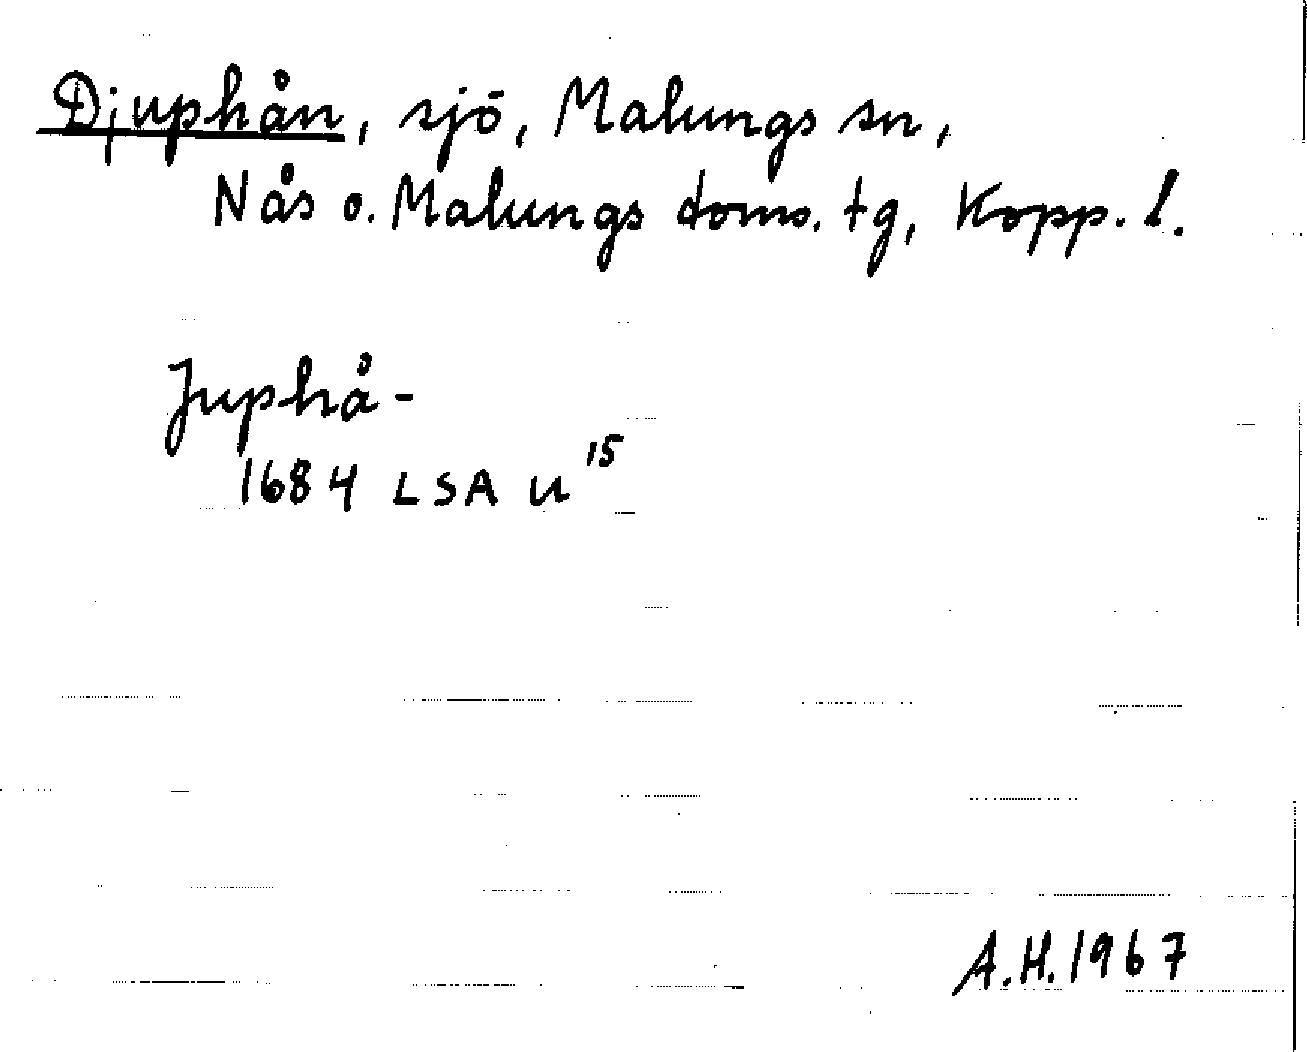 Djuphån, sjö, Malungs sn,
Nås o. Malungs doms. tg, Kopp. l.
Juphå-
1684 LSA U 15
A.H. 1967